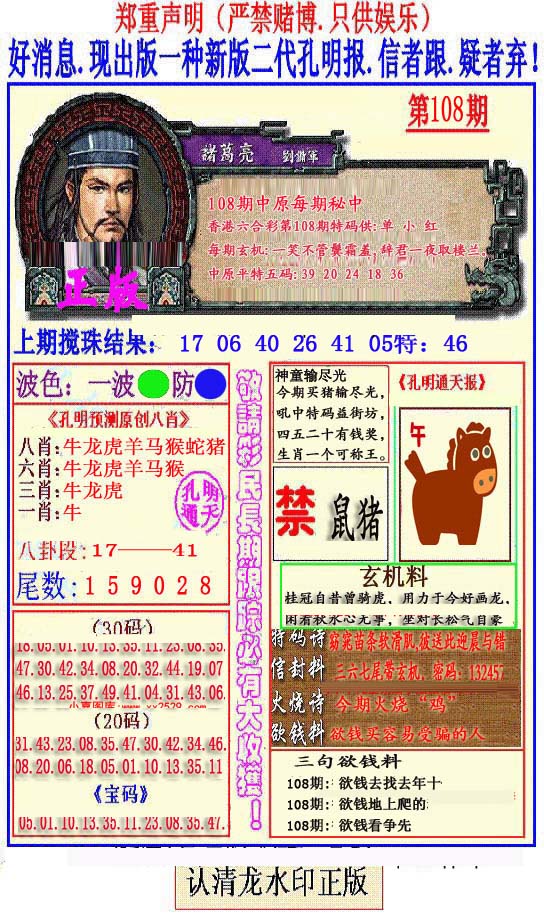 郑重声明（严禁赌博.只供娱乐）
好消息.现出版一种新版二代孔明报.信者跟.疑者弃!
第108期
諸葛亮 劉備軍
108期中原每期秘中
香港六合彩第108期特码供:单 小 红
每期玄机:一笑不管龑霜盖,辞君一夜取楼兰.
中原平特五码:39 20 24 18 36
正版
上期搅珠结果: 17 06 40 26 41 05特: 46
波色: 一波 防
《孔明预测原创八肖》
八肖:牛龙虎羊马猴蛇猪
六肖:牛龙虎羊马猴
三肖:牛龙虎
一肖:牛
孔明
通天
八卦段:17——41
尾数:159028
(30码)
18.05.01.10.13.35.11.23.08.35.
47.30.42.34.08.20.32.44.19.07
46.13.25.37.49.41.04.31.43.06.
(20码)
31.43.23.08.35.47.30.42.34.46.
08.20.06.18.05.01.10.13.35.11
《宝码》
05.01.10.13.35.11.23.08.35.47.
敬請彩民長期跟踪必有大收獲!
神童输尽光
今期买猪输尽光,
吼中特码益街坊,
四五二十有钱奖,
生肖一个可称王。
《孔明通天报》
午
禁 鼠猪
玄机料
桂冠自昔曾骑虎, 用力于今好画龙,
闲看秋水心无事, 坐对长松气自豪
特码诗 窈窕苗条软滑肌,彼送此迎晨与错
信封料 三六七尾带玄机, 密码: 132457
火烧诗 今期火烧“鸡”
欲钱料 欲钱买容易受骗的人
三句欲钱料
108期: 欲钱去找去年十
108期: 欲钱地上爬的
108期: 欲钱看争先
认清龙水印正版